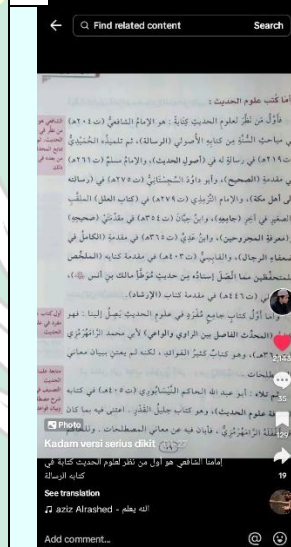 Find related content
Search
أما كتب علوم الحديث :
فأوَّل مَن نَظَرَ لعلوم الحديث كتابةً : هو الإمامُ الشافعيُّ (ت٢٠٤هـ)
في مباحث السُّنَّة مِن كتابِهِ الأُصولي (الرسالة)، ثم تلميذُه الحُمَيْدِيُّ
(ت٢١٩هـ) في رسالةٍ له في (أصول الحديث)، والإمامُ مسلمٌ (ت٢٦١هـ)
في مقدمةِ (الصحيح)، وأبو داوُدَ السِّجِسْتَانِيُّ (ت٢٧٥هـ) في (رسالته
إلى أهل مكة)، والإمام التِّرْمِذي (ت٢٧٩هـ) في (كتاب العلل) الملقَّب
الصغير في آخِرِ (جامِعِهِ)، وابنُ حِبَّانَ (ت٣٥٤هـ) في مقدِّمَتَيْ (صحيحِهِ)
(معرفةِ المجروحين)، وابنُ عَدِيٍّ (ت٣٦٥هـ) في مقدمةِ (الكاملُ في
ضعفاءِ الرجال)، والقابِسِيُّ (ت٤٠٣هـ) في مقدمة كتابِه (الملخِّص
للمتحفِّظين مما اتَّصَلَ إسنادُه مِن حديثِ مُوَطَّأ مالك بن أنس
(ت٤٤٦هـ) في مقدمة كتاب (الإرشاد).
وأما أوّل كتابٍ جامِعٍ مُفْرَدٍ في علوم الحديثِ يَصِلُ إلينا : فهو
(المحدِّث الفاصل بين الراوي والواعي) لأبي محمد الرَّامَهُرْمُزِيِّ
، وهو كتابٌ كثيرُ الفوائد، لكنه لم يعتنِ ببيان معاني
ثم تلاه : أبو عبد الله الحاكم النَّيْسَابُوري (ت٤٠٥هـ) في كتابه
علوم الحديث)، وهو كتاب جليلُ القَدْر . اعتنى فيه بما كان
، فأبان فيه عن معاني المصطلحات .
2143
35
27
19
Photo
Kadam versi serius dikit
إمامنا الشافعي هو أول من نظر لعلوم الحديث كتابة في
كتابه الرسالة
See translation
aziz Alrashed - الله يعلم
Add comment...